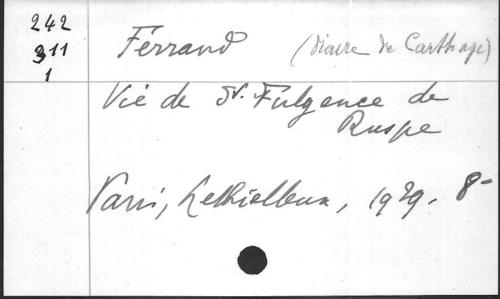 242
311
1
Ferrand (diacre de Carthage)
Vie de St. Fulgence de
Ruspe
Paris, Lethielleux, 1929. 8-